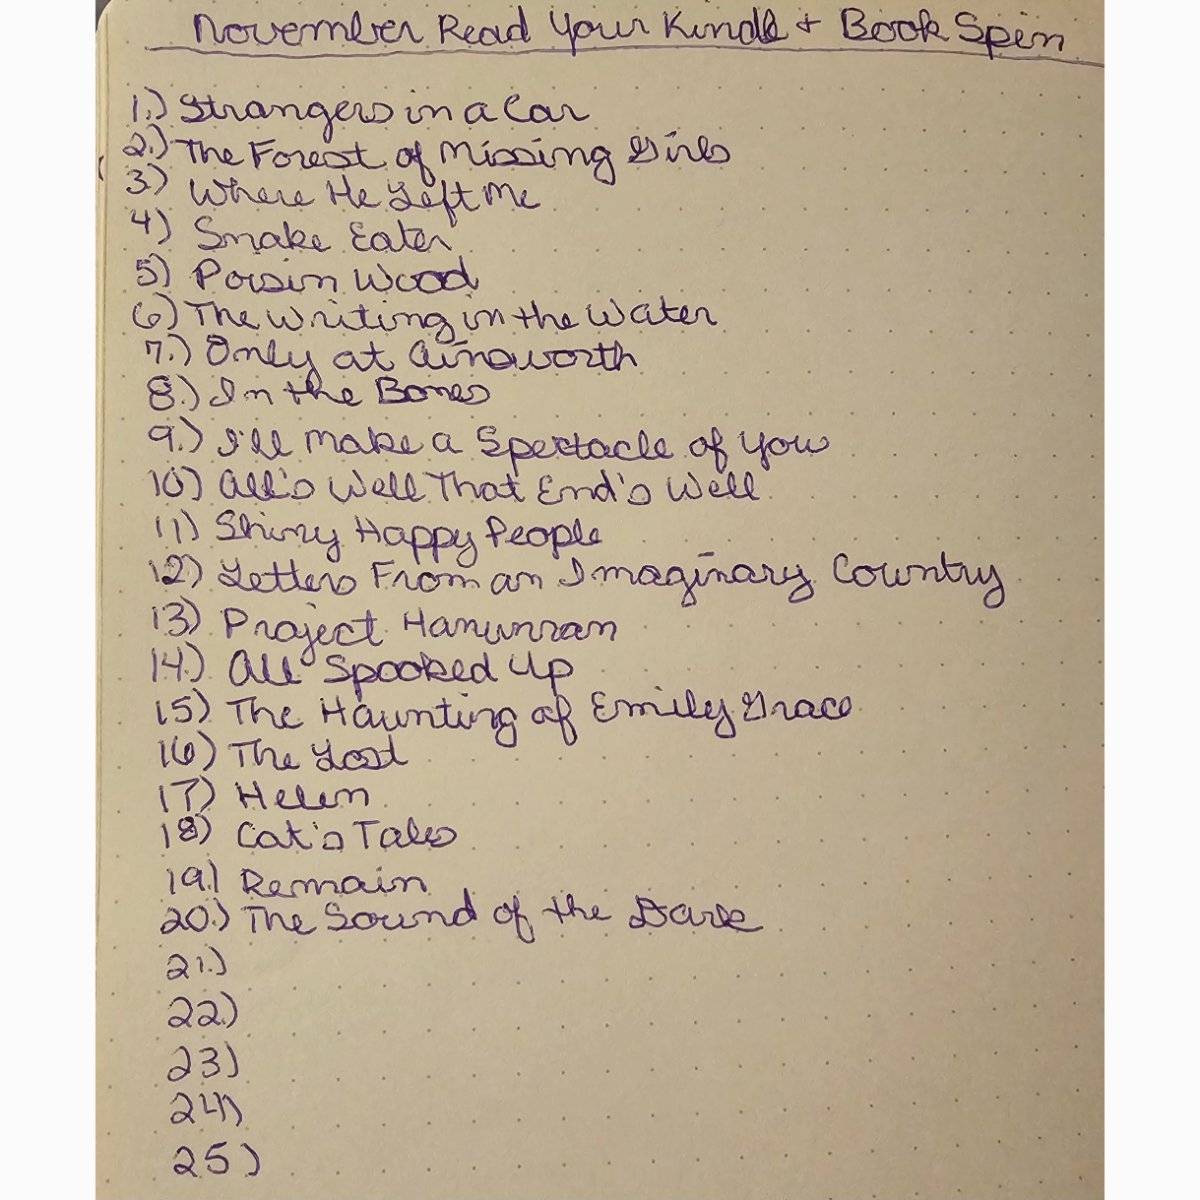 November Read Your Kindle + Book Spin
1.) Strangers in a Car
2.) The Forest of Missing Girls
3.) Where He Left Me
4) Snake Eater
5) Poisin Wood
6) The Writing in the Water
7.) Only at Ainsworth
8.) In the Bones
9.) I'll make a Spectacle of You
10) All's Well That End's Well
11) Shiny Happy People
12) Letters From an Imaginary Country
13) Project Hanunran
14.) All Spooked Up
15) The Haunting of Emily Grace
16) The Lost
17) Helen
18) Cat's Tales
19.) Remain
20.) The Sound of the Dark
21.)
22.)
23)
24)
25)